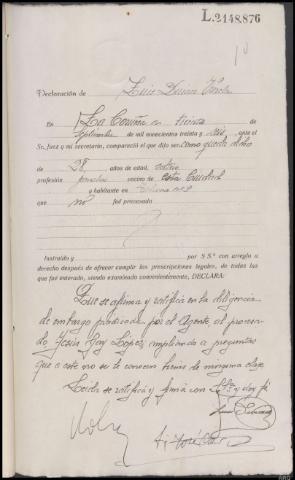 L.2148.876
Declaración de Luis
En La Coruña a treinta
septiembre de mil novecientos treinta y seis, ante el
Sr. Juez y mi secretario, compareció el que dijo ser como queda dicho
de 28 años de edad, soltero
profesión vecino de esta Ciudad
y habitante en
que no fué procesado
Instruído y por S Sª con arreglo a
derecho después de ofrecer cumplir las prescripciones legales, de todas las
que fué enterado, siendo examinado convenientemente, DECLARA:
Que se afirma y ratifica en la diligencia
de embargo practicada por el Agente al procesa-
do Jesús Gay López, ampliando a preguntas
que a este no se le conocen bienes de ninguna clase
Leída se ratifica y firma con S.Sª y doy fé